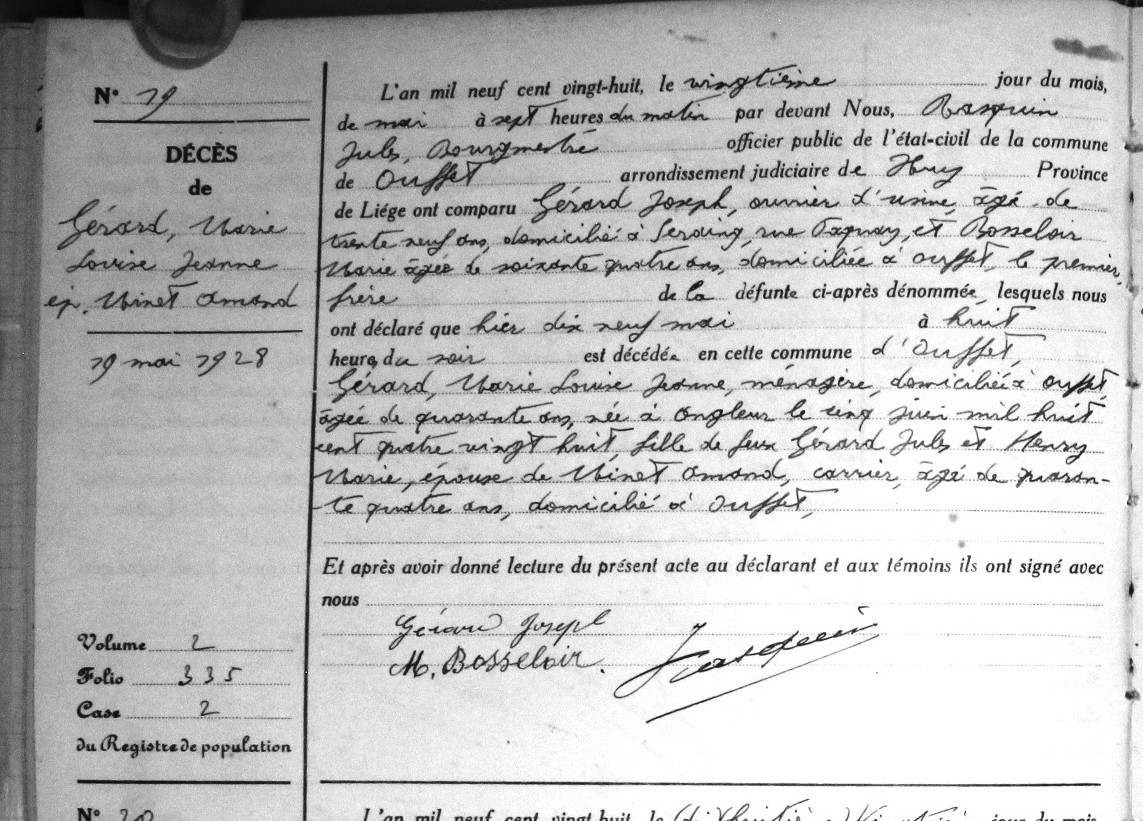 N° 19
DÉCÈS
de
Gérard, Marie
Louise Jeanne
ép. Minet Amand
19 mai 1928
Volume 2
Folio 335
Case 2
du Registre de population
L'an mil neuf cent vingt-huit, le vingtième jour du mois,
de mai à sept heures du matin par devant Nous, Rasquin
Jules, Bourgmestre officier public de l'état-civil de la commune
de Ouffet arrondissement judiciaire de Huy Province
de Liége ont comparu Gérard Joseph, ouvrier d'usine, âgé de
trente neuf ans, domicilié à Seraing, rue Papnay, et Bosseloir
Marie âgée de soixante quatre ans, domiciliée à Ouffet, le premier,
frère de la défunte ci-après dénommée, lesquels nous
ont déclaré que hier dix neuf mai à huit
heures du soir est décédée en cette commune d'Ouffet,
Gérard, Marie Louise Jeanne, ménagère, domiciliée à Ouffet,
âgée de quarante ans, née à Angleur le cinq juin mil huit
cent quatre vingt huit, fille de feux Gérard Jules et Henry
Marie, épouse de Minet Amand, carrier, âgé de quaran-
te quatre ans, domicilié à Ouffet,
Et après avoir donné lecture du présent acte au déclarant et aux témoins ils ont signé avec
nous
Gérard Joseph
M. Bosseloir. Jasquin
N° 20
L'an mil neuf cent vingt-huit, le jour du mois,